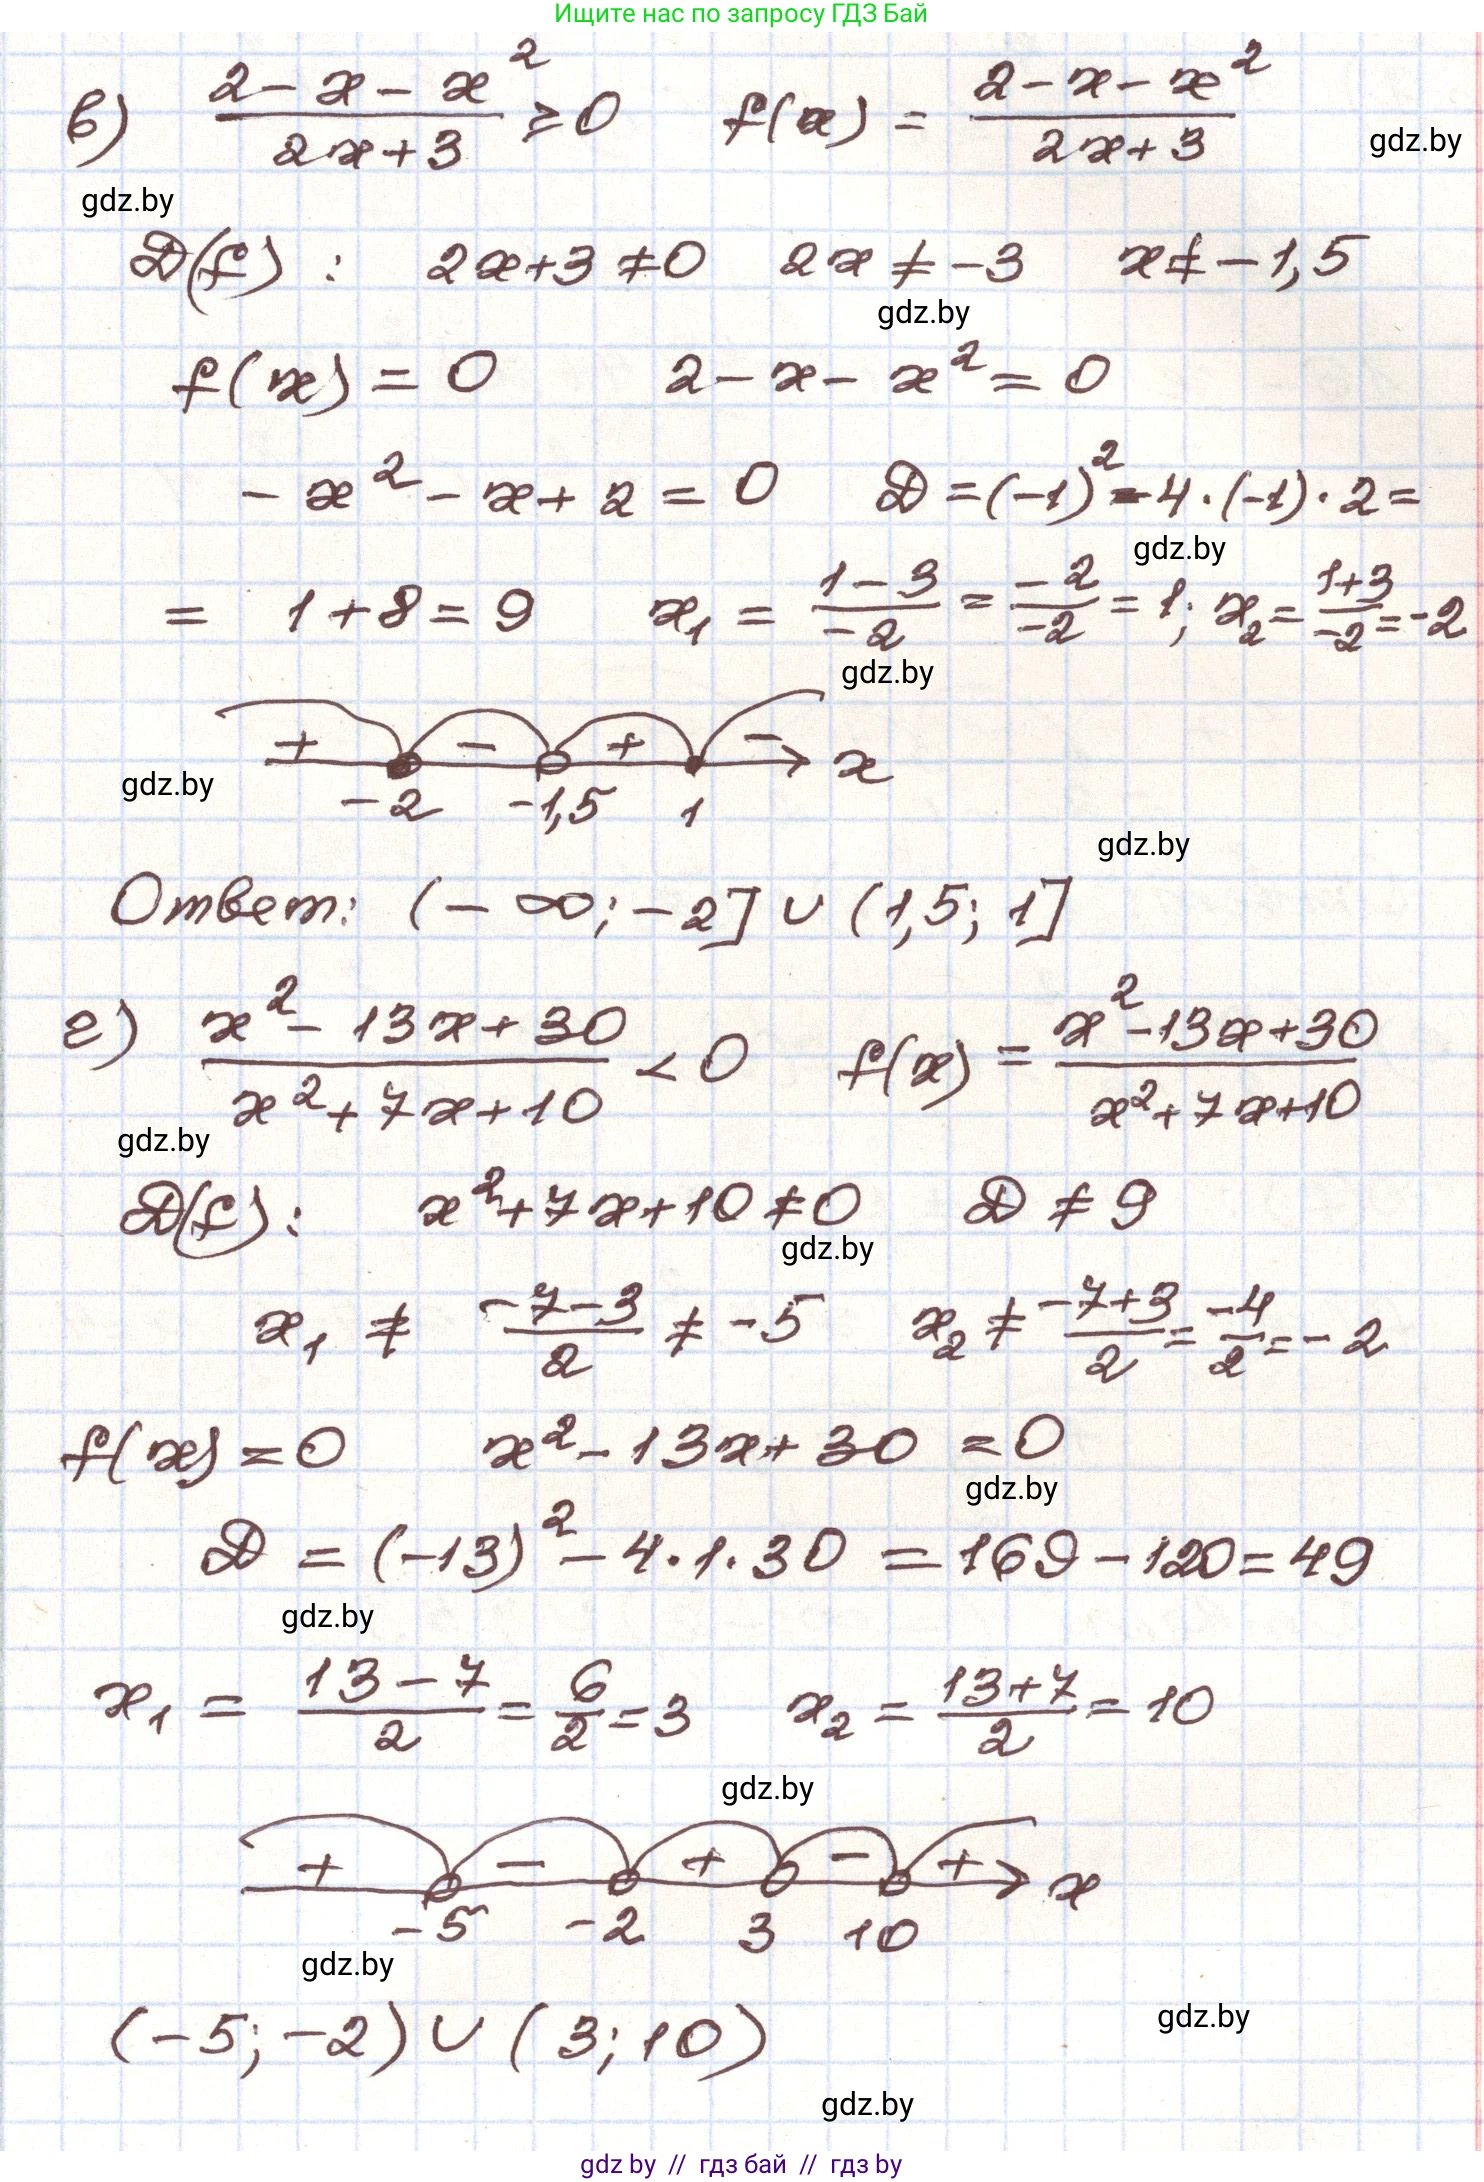 Ищите нас по запросу ГДЗ Бай
в) (2 - x - x²)/(2x + 3) ≥ 0 f(x) = (2 - x - x²)/(2x + 3)
gdz.by
gdz.by
D(f) : 2x + 3 ≠ 0 2x ≠ -3 x ≠ -1,5
gdz.by
f(x) = 0 2 - x - x² = 0
-x² - x + 2 = 0 D = (-1)² - 4 · (-1) · 2 =
gdz.by
= 1 + 8 = 9 x₁ = (1 - 3)/(-2) = (-2)/(-2) = 1; x₂ = (1+3)/(-2) = -2
gdz.by
+ - + - x
gdz.by
-2 -1,5 1
gdz.by
Ответ: (-∞; -2] ∪ (1,5; 1]
г) (x² - 13x + 30)/(x² + 7x + 10) < 0 f(x) = (x² - 13x + 30)/(x² + 7x + 10)
gdz.by
D(f) : x² + 7x + 10 ≠ 0 D ≠ 9
gdz.by
x₁ ≠ (-7 - 3)/2 ≠ -5 x₂ ≠ (-7 + 3)/2 = (-4)/2 = -2
f(x) = 0 x² - 13x + 30 = 0
gdz.by
D = (-13)² - 4 · 1 · 30 = 169 - 120 = 49
gdz.by
x₁ = (13 - 7)/2 = 6/2 = 3 x₂ = (13 + 7)/2 = 10
gdz.by
+ - + - + x
-5 -2 3 10
gdz.by
(-5; -2) ∪ (3; 10)
gdz.by
gdz.by
gdz by // гдз бай // гдз by